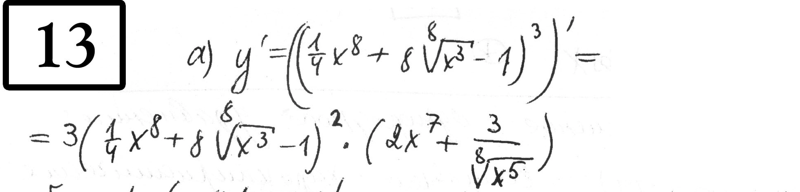 13
a) y' = ((1/4 x⁸ + 8 ⁸√x³ - 1)³)' =
= 3(1/4 x⁸ + 8 ⁸√x³ - 1)² · (2x⁷ + 3/⁸√x⁵)